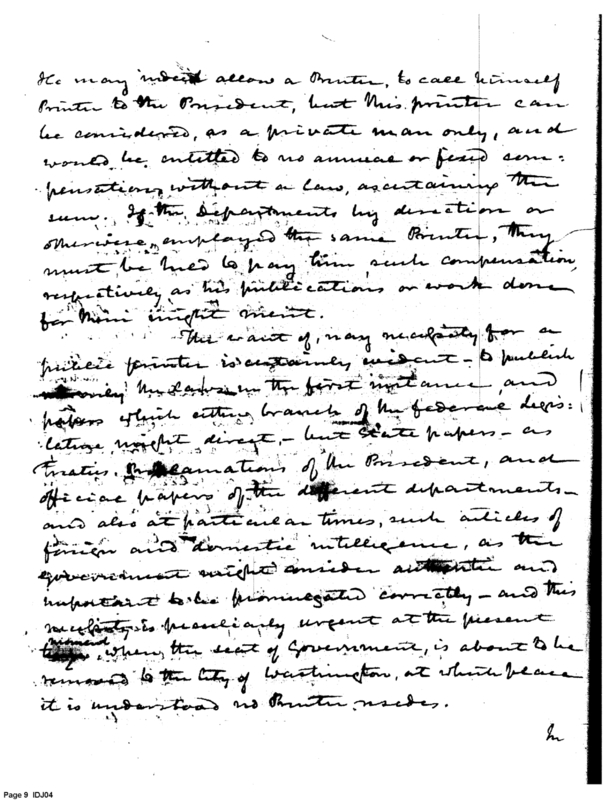 He may indeed allow a Printer, to call himself
Printer to the President, but this printer can
be considered, as a private man only, and
would be entitled to no annual or fixed com=
pensation, without a law, ascertaining the
sum. If the Departments by direction or
otherwise, employed the same Printer, they
must be held to pay him such compensation,
respectively, as his publications or work done
for them might merit.
The want of, nay necessity for a
public printer is certainly evident - to publish
not only the Laws in the first instance, and
papers which either branch of the federal Legis=
lature might direct, - but State papers - as
Treaties. Proclamations of the President, and
official papers of the different departments -
and also at particular times, such articles of
foreign and domestic intelligence, as the
government might consider authentic and
important to be promulgated correctly - and this
necessity is peculiarly urgent at the present
moment
when the seat of Government, is about to be
removed to the City of Washington, at which place
it is understood no Printer resides.
In
Page 9 IDJ04